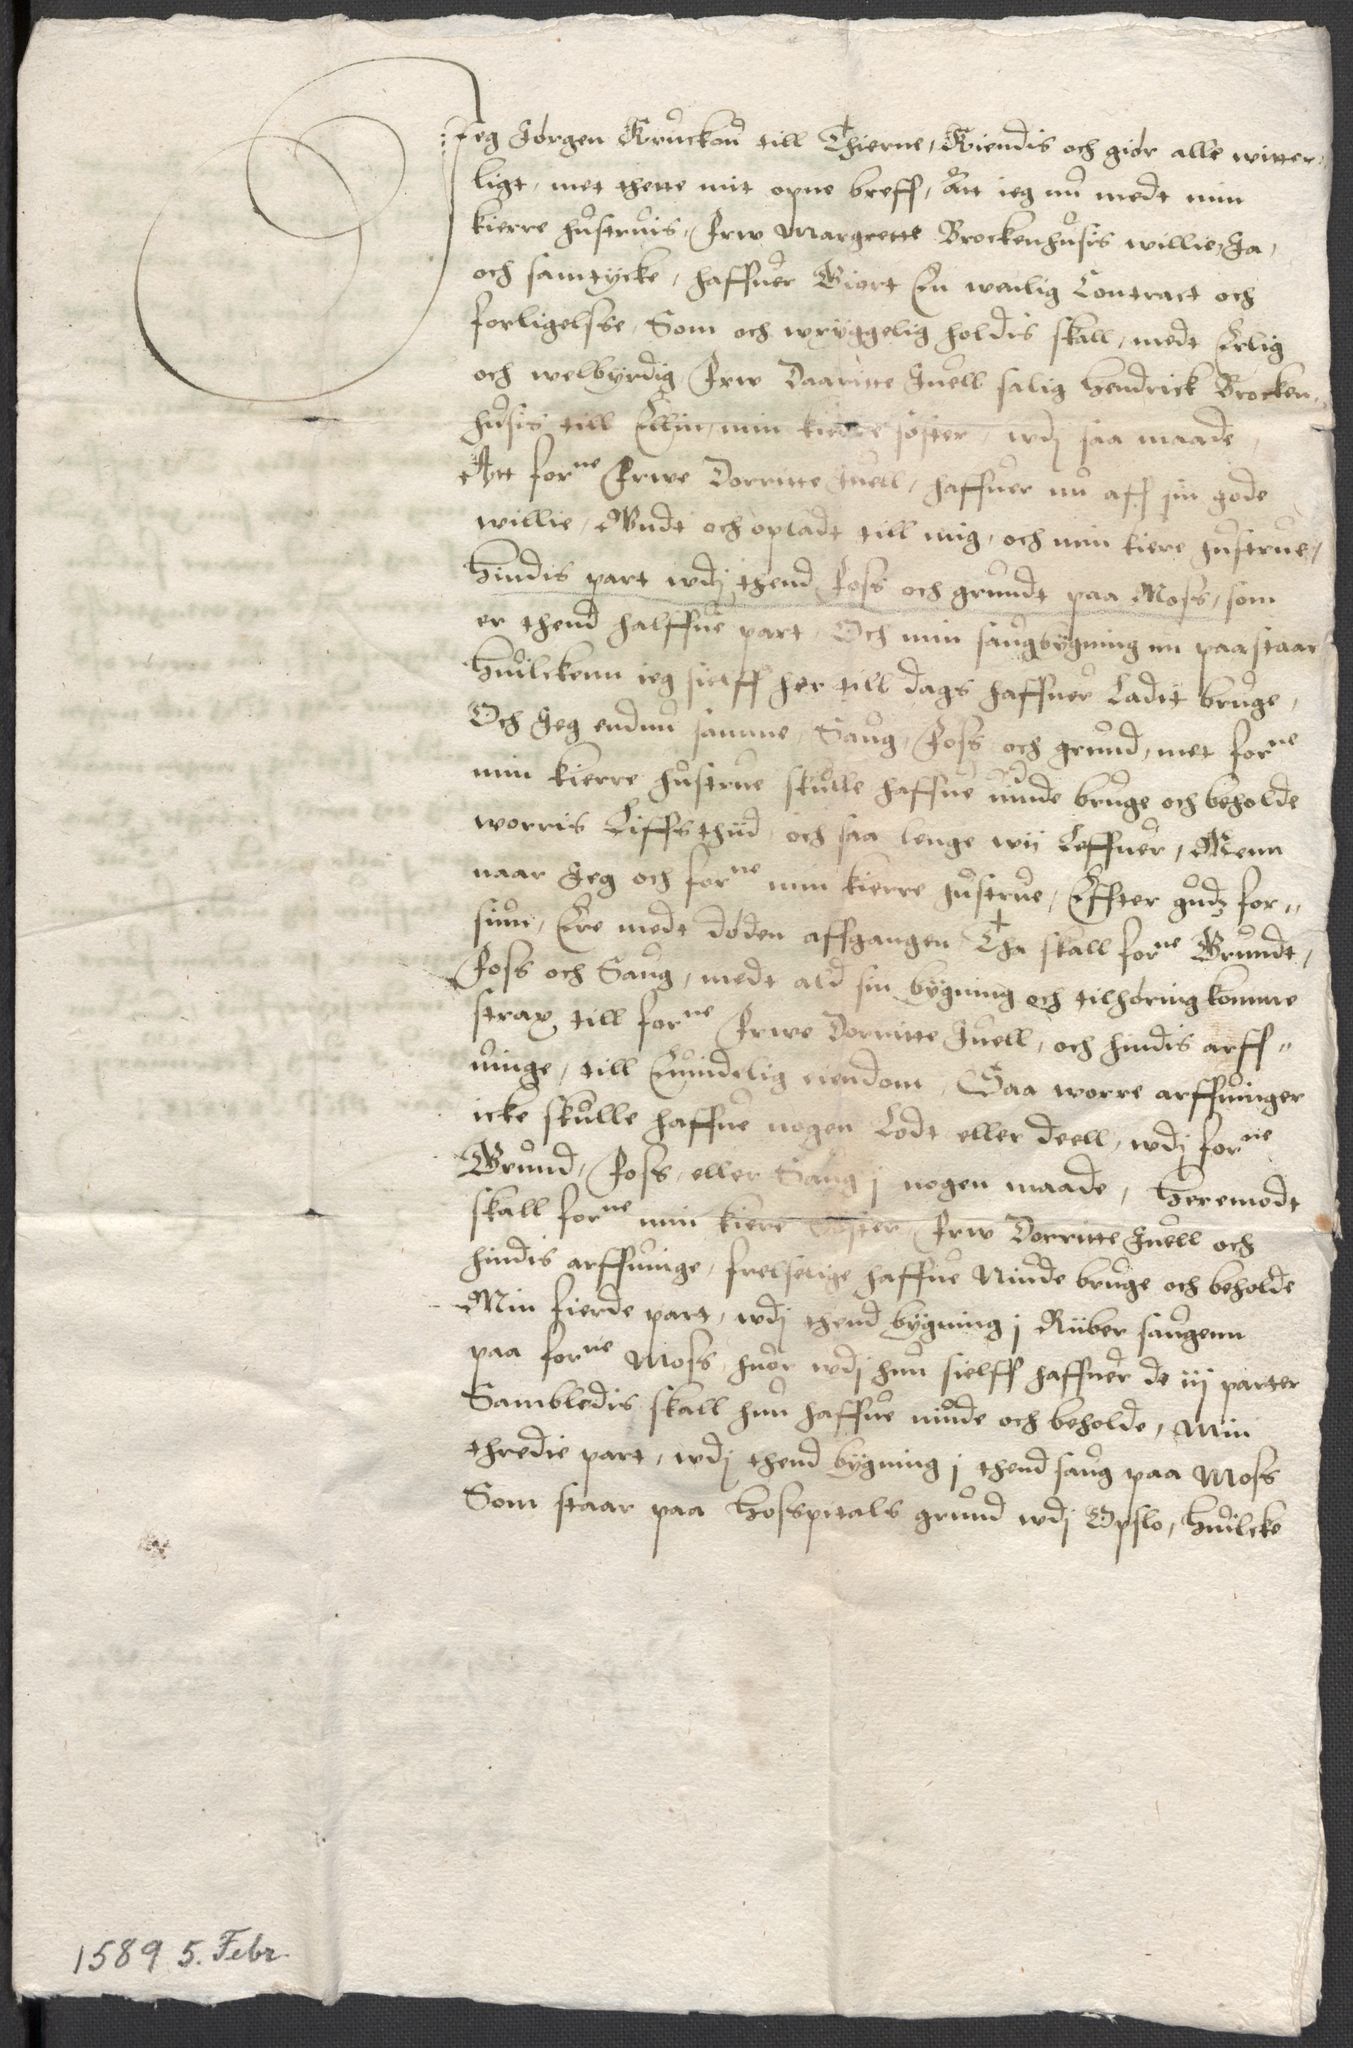 Jeg Jørgen Kruckou till Thierne, Kiendis och giør alle witter,
ligt, met thette mit opne breff, Att ieg nu medt min
kierre hustruis, Frw Margrette Brockenhusis willie, Ja,
och samtycke, haffuer Giort En wenlig Contract och
forligelsse, Som och wryggelig holdis skall, medt Erlig
och welbyrdig Frw Daaritte Juell salig Hendrick Brocken,,
husis till Ellin, min kierre søster, wdj saa maade,
Att forne Frwe Dorritte Juell, haffuer nu aff sin gode
willie, Undt och opladt till mig, och min kiere hustrue,
Hindis part wdj thend Foss och grundt paa Moss, som
er thend halffue part, Och min saugbygning nu paastaar
Huilckenn ieg sielff her till dags haffuer Ladit bruge,
Och Jeg endnu samme, Saug, Foss och grund, met forne
min kierre hustrue skulle haffue niude bruge och beholde
worris Liffs thiid, och saa lenge wii Leffuer, Menn
naar Jeg och forne min kierre hustrue, Effter gudz for,,
siun, Ere medt døden affgangen Tha skall forne Grundt,
Foss och Saug, medt ald sin bygning och tilhøring komme
strax till forne Frwe Dorritte Juell, och hindis arff,,
uinge, till Euindelig eiendom, Saa worre arffuinger
icke skulle haffue nogen Lodt eller deell, wdj forne
Grund, Foss, eller Saug j nogen maade, Heremodt
skall forne min kiere Søster, Frw Dorritte Juell och
hindis arffuinge, frelselige haffue Niude bruge och beholde
Min fierde part, wdj thend bygning j Riiber saugenn
paa forne Moss, huor wdj hun sielff haffuer de iij parter
Sambledis skall hun haffue niude och beholde, Min
thredie part, wdj thend bygning j thend saug paa Moss
Som staar paa Hosspitals grund wdj Opslo, Huilcke
1589 5. Febr.